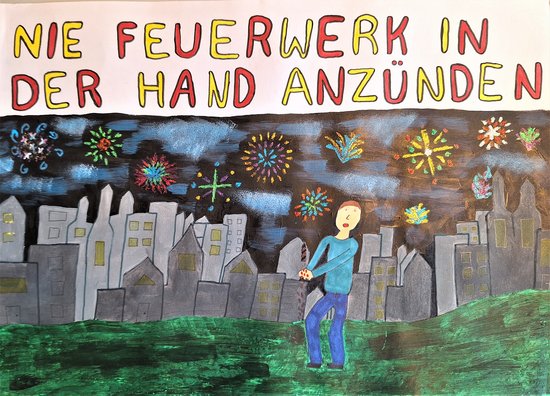 NIE FEUERWERK IN
DER HAND ANZÜNDEN